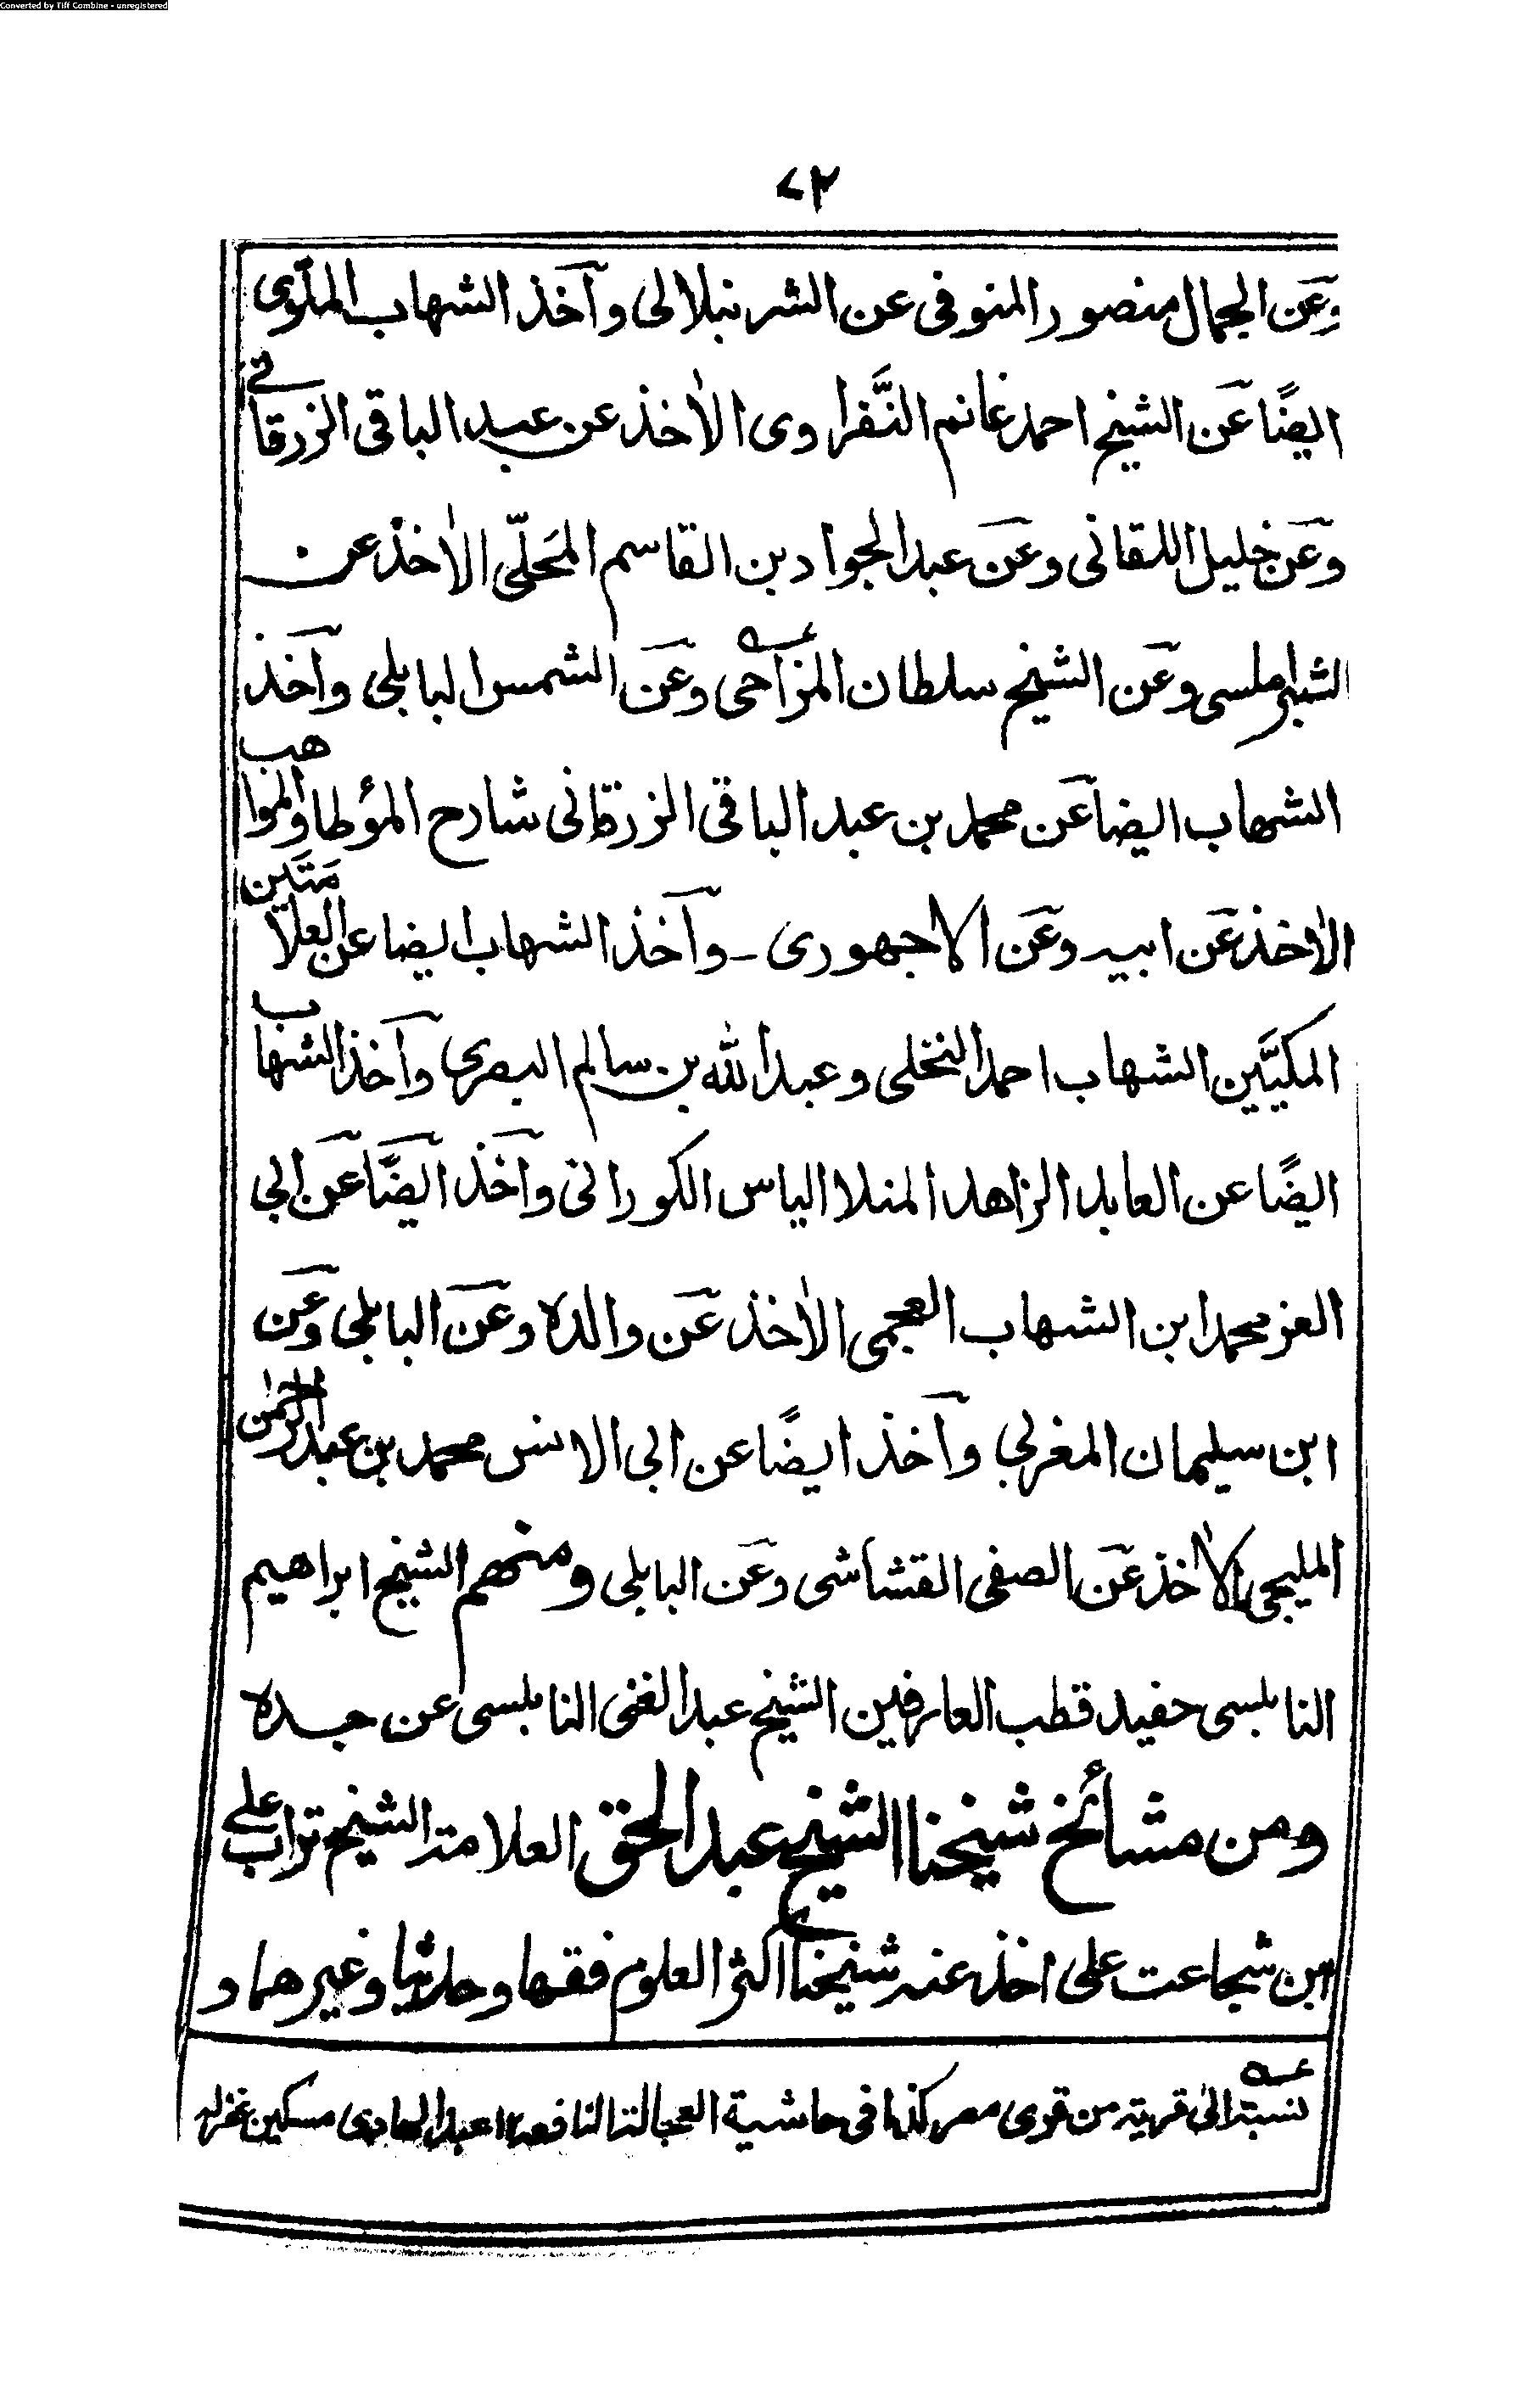 Converted by Tiff Combine - unregistered
٧٢
وعن الجمال منصور المنوفى عن الشرنبلالى وآخذ الشهاب الملّوى
ايضًا عن الشيخ احمد غانم النَّفراوى الاٰخذ عن عبد الباقى الزرقانے
وعن خليل اللقانى وعن عبد الجواد بن القاسم المَحلّى الاٰخذ عن
الشبراملسى وعن الشيخ سلطان المزاحى عــه وعن الشمس البابلى وآخذ
الشهاب ايضا عن محمد بن عبد الباقى الزرقانى شارح المؤطا والمواهب
الاٰخذ عن ابيه وعن الاجهورى - وآخذ الشهاب ايضا عن العلامَتَين
المكيَّين الشهاب احمد النخلى وعبد الله بن سالم البصرى وآخذ الشهاب
ايضًا عن العابد الزاهد المنلا الياس الكورانى وآخذ ايضًا عن ابى
العز محمد ابن الشهاب العجمى الاٰخذ عن والده وعن البابلى وعن
ابن سليمان المغربى وآخذ ايضًا عن ابى الانس محمد بن عبد الرحمٰن
المليجى الاٰخذ عن الصفى القشاشى وعن البابلى ومنهم الشيخ ابراهيم
النابلسى حفيد قطب العارفين الشيخ عبد الغنى النابلسى عن جده
ومن مشائخ شيخنا الشيخ عبد الحق العلامة الشيخ تراب على
ابن شجاعت على اخذ عنه شيخنا اكثر العلوم فقها وحديثا وغيرهما و
عــه نسبة الىٰ قرية من قرى مصر كذا فى حاشية العجالة النافعة ١٢ عبد الهادى مسكين غفر له